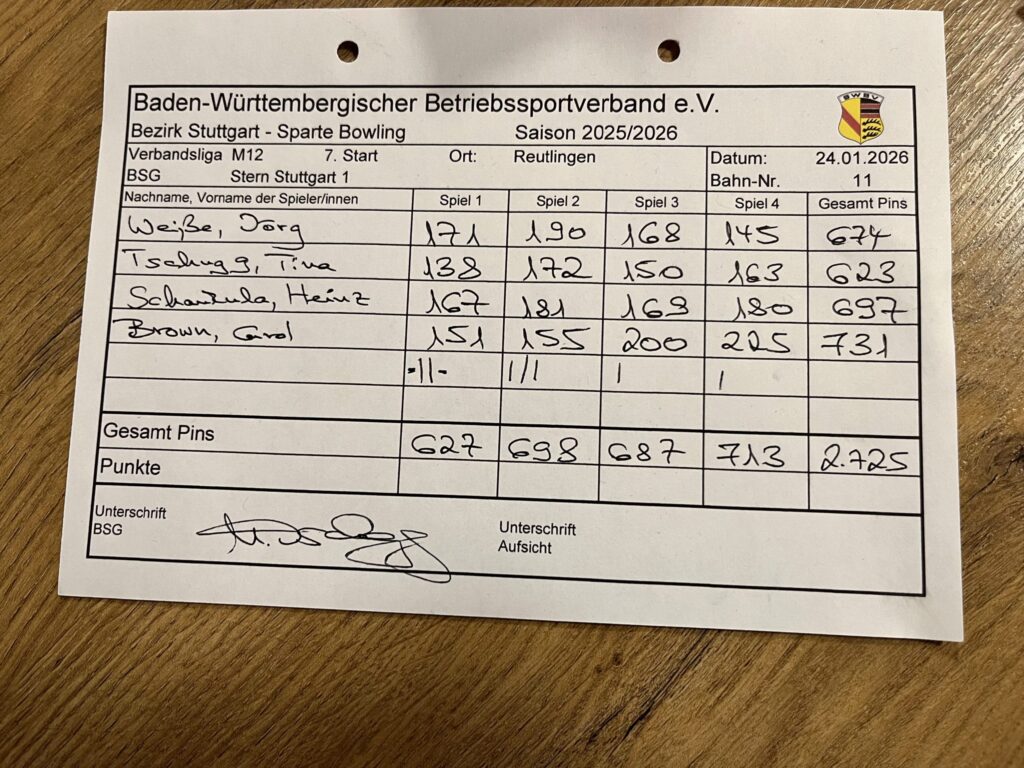 Baden-Württembergischer Betriebssportverband e.V.
BWBV
Bezirk Stuttgart - Sparte Bowling Saison 2025/2026
Verbandsliga M12 7. Start Ort: Reutlingen Datum: 24.01.2026
BSG Stern Stuttgart 1 Bahn-Nr. 11
Nachname, Vorname der Spieler/innen Spiel 1 Spiel 2 Spiel 3 Spiel 4 Gesamt Pins
Weiße, Jörg 171 190 168 145 674
Tschugg, Tina 138 172 150 163 623
Heinz 167 181 169 180 697
Brown, Carol 151 155 200 225 731
Gesamt Pins 627 698 687 713 2.725
Punkte
Unterschrift BSG
Unterschrift Aufsicht